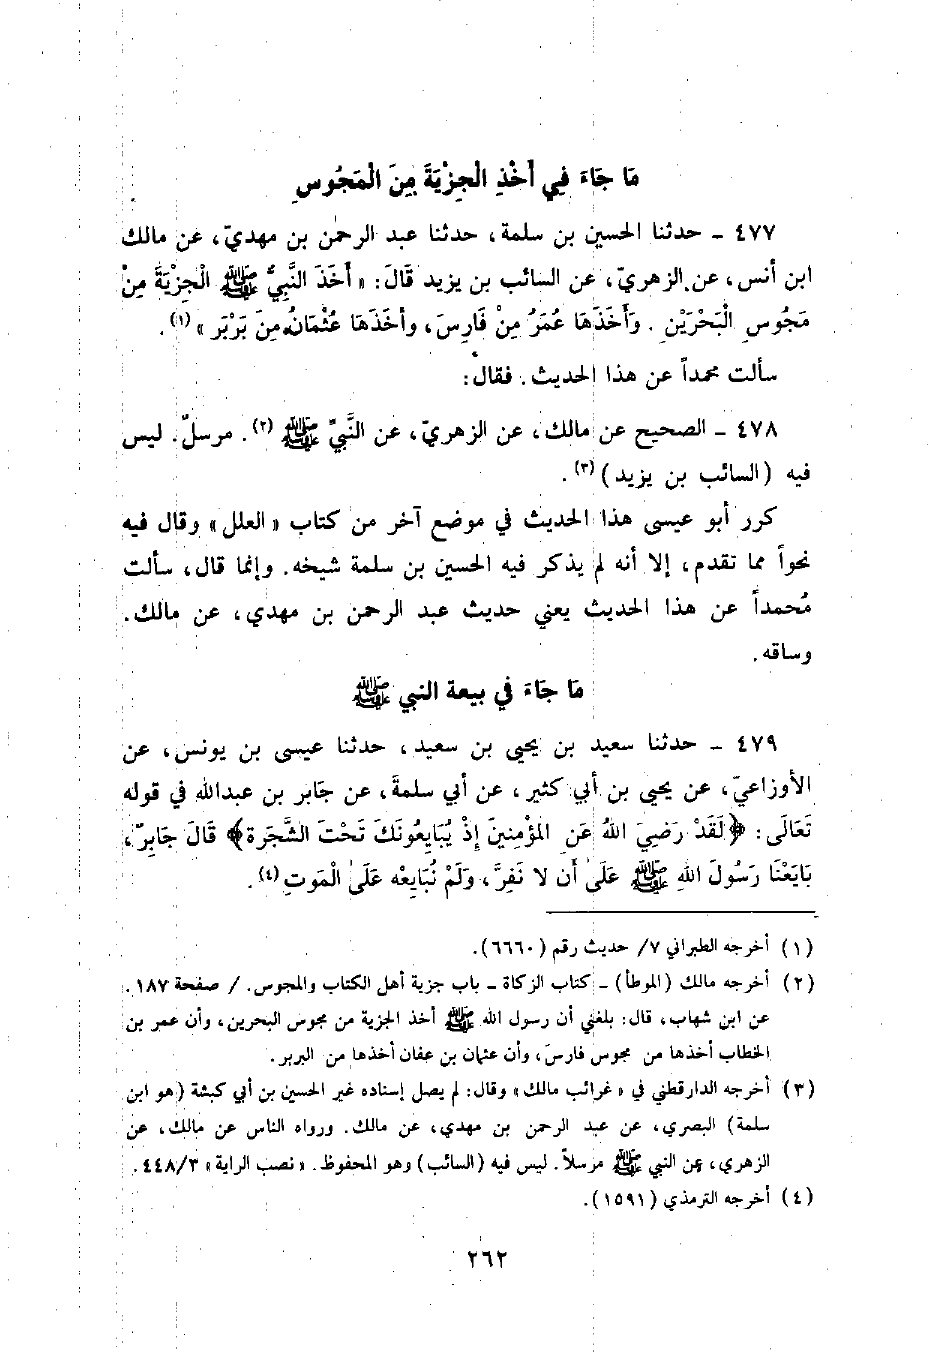 مَا جَاءَ فِي أَخْذِ الْجِزْيَةَ مِنَ الْمَجُوسِ
٤٧٧ ـ حدثنا الحسين بن سلمة، حدثنا عبد الرحمٰن بن مهديّ، عن مالك
ابن أنس، عن الزهريّ، عن السائب بن يزيد قَالَ: « أَخَذَ النَّبِيُّ ﷺ الْجِزْيَةَ مِنْ
مَجُوسِ الْبَحْرَيْنِ. وَأَخَذَهَا عُمَرُ مِنْ فَارِسَ، وأَخَذَهَا عُثْمَانُ مِنَ بَرْبَر » (١).
سألت محمداً عن هذا الحديث. فقال:
٤٧٨ ـ الصحيح عن مالك، عن الزهريّ، عن النَّبيِّ ﷺ (٢). مرسلٌ. ليس
فيه (السائب بن يزيد) (٣).
كرر أبو عيسى هذا الحديث في موضع آخر من كتاب « العلل » وقال فيه
نحواً مما تقدم، إلا أنه لم يذكر فيه الحسين بن سلمة شيخه. وإنما قال، سألت
مُحمداً عن هذا الحديث يعني حديث عبد الرحمن بن مهدي، عن مالك.
وساقه.
مَا جَاءَ في بيعة النبي ﷺ
٤٧٩ ـ حدثنا سعيد بن يحيى بن سعيد، حدثنا عيسى بن يونس، عن
الأوزاعيّ، عن يحيى بن أبي كثير، عن أبي سلمةَ، عن جَابر بن عبدالله في قوله
تَعَالَى: ﴿لَقَدْ رَضِيَ اللهُ عَنِ المؤْمِنينَ إِذْ يُبَايِعُونَكَ تَحْتَ الشَّجَرة﴾ قَالَ جَابِرٌ،
بَايَعْنَا رَسُولَ اللهِ ﷺ عَلَىٰ أَن لا نَفِرَّ، وَلَمْ نُبَايِعْه عَلَىٰ الْمَوتِ (٤).
(١) أخرجه الطبراني ٧/ حديث رقم (٦٦٦٠).
(٢) أخرجه مالك (الموطأ) ـ كتاب الزكاة ـ باب جزية أهل الكتاب والمجوس. / صفحة ١٨٧.
عن ابن شهاب، قال: بلغني أن رسول الله ﷺ أخذ الجزية من مجوس البحرين، وأن عمر بن
الخطاب أخذها من مجوس فارسَ، وأن عثمان بن عفان أخذها من البربر.
(٣) أخرجه الدارقطني في « غرائب مالك » وقال: لم يصل إسناده غير الحسين بن أبي كبشة (هو ابن
سلمة) البصري، عن عبد الرحمن بن مهدي، عن مالك. ورواه الناس عن مالك، عن
الزهري، عن النبي ﷺ مرسلاً. ليس فيه (السائب) وهو المحفوظ. « نصب الراية » ٤٤٨/٣.
(٤) أخرجه الترمذي (١٥٩١).
٢٦٢